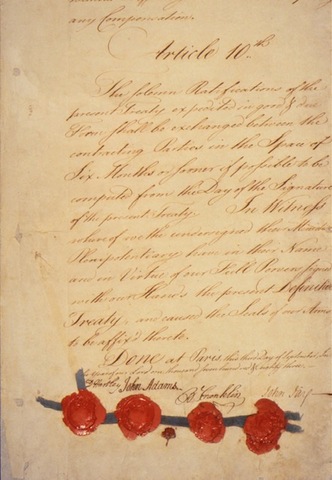 any Compensation.
Article 10th.
The solemn Ratifications of the
present Treaty expedited in good & due
Form shall be exchanged between the
contracting Parties in the Space of
Six Months or sooner if possible to be
computed from the Day of the Signature
of the present Treaty. In Witness
whereof we the undersigned their Ministers
Plenipotentiary have in their Name
and in Virtue of our Full Powers signed
with our Hands the present Definitive
Treaty, and caused the Seals of our Arms
to be affix'd thereto.
Done at Paris, this third Day of September, In
the Year of our Lord one thousand seven hundred & eighty three.
D Hartley John Adams B Franklin John Jay